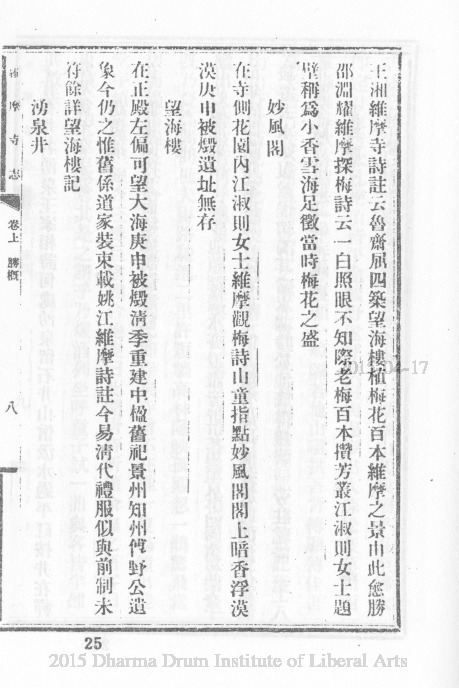 王湘維摩寺詩註云魯齋屈四築望海樓植梅花百本維摩之景由此愈勝
邵淵耀維摩探梅詩云一白照眼不知際老梅百本攢芳叢江淑則女士題
壁稱爲小香雪海足徵當時梅花之盛
妙風閣
在寺側花園內江淑則女士維摩觀梅詩山童指點妙風閣閣上暗香浮漠
漠庚申被燬遺址無存
望海樓
在正殿左偏可望大海庚申被燬淸季重建中楹舊祀景州知州 野公遺
象今仍之惟舊係道家裝束載姚江維摩詩註今易清代禮服似與前制未
符餘詳望海樓記
湧泉井
維摩寺志
卷上 勝概
八
25
2015-04-17
2015 Dharma Drum Institute of Liberal Arts